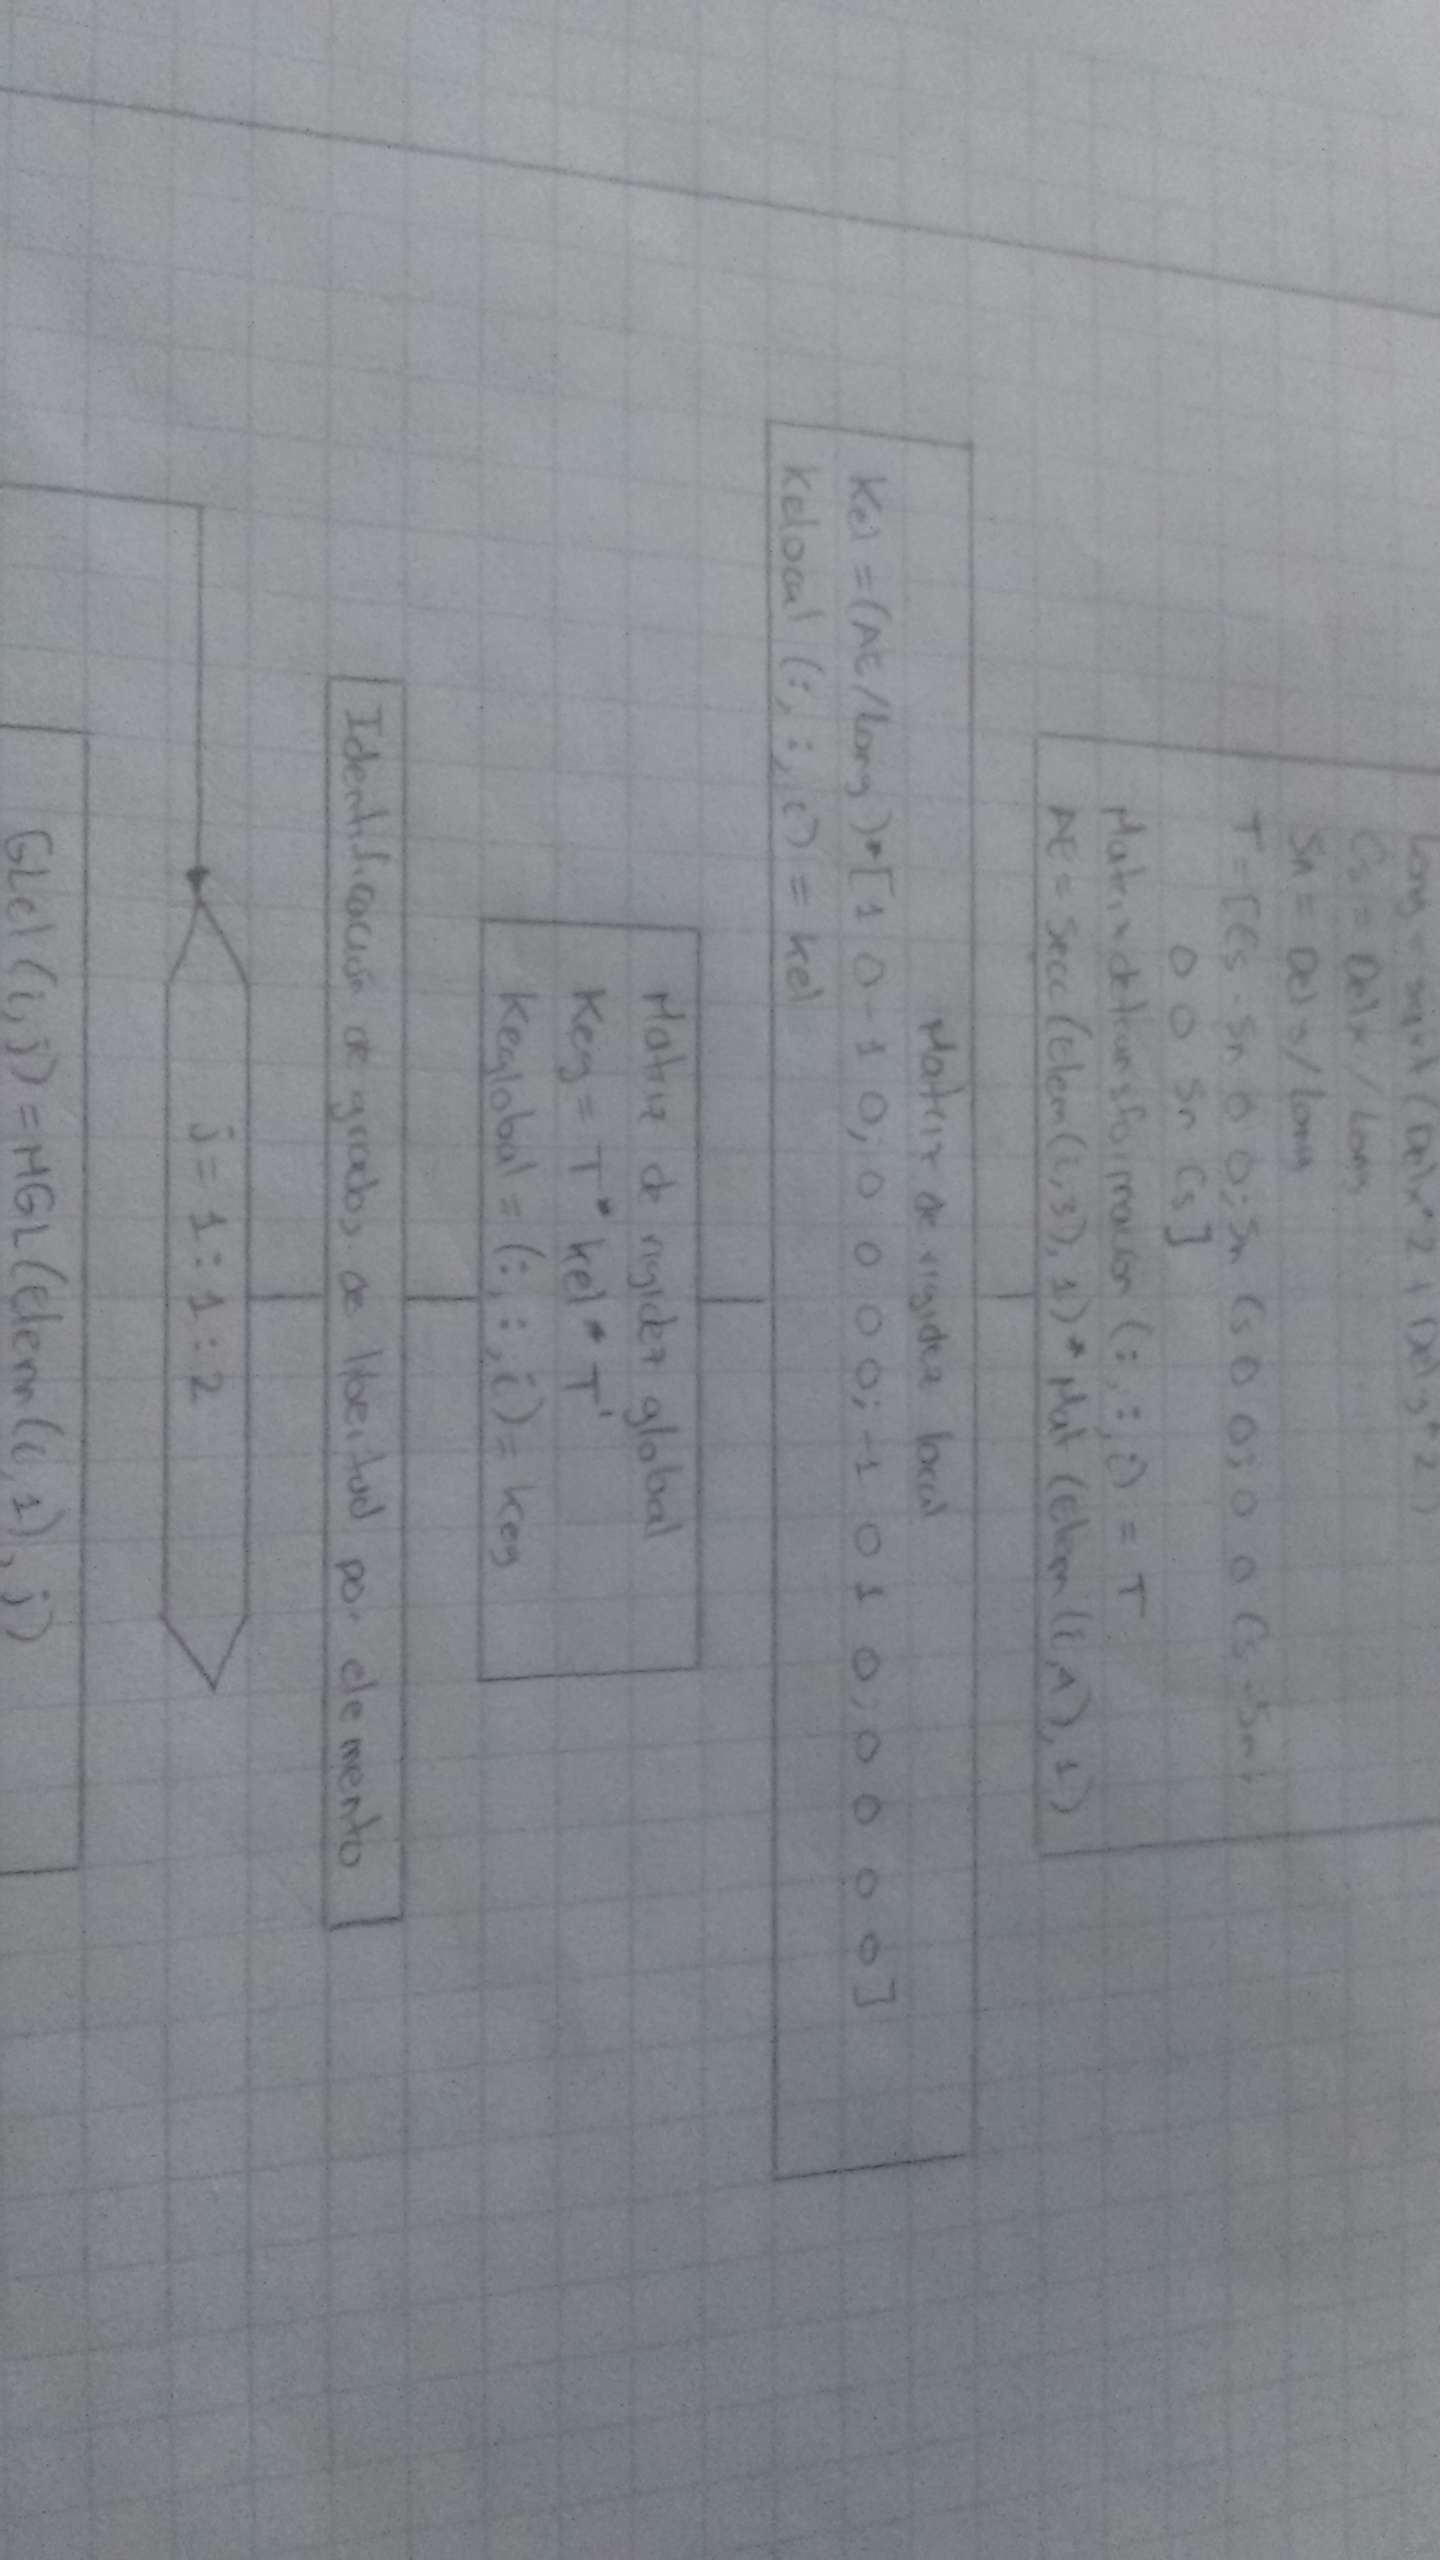 Long = sqrt (Delx^2 + Dely^2)
Cs = Delx / Long
Sn = Dely / Long
T = [Cs -Sn 0 0; Sn Cs 0 0; 0 0 Cs -Sn;
0 0 Sn Cs]
Matrix de transformación (:,:,i) = T
AE = Secc (Elem(i,3),1) * Mat (Elem(i,4),1)
Matriz de rigidez local
Kel = (AE/Long)*[1 0 -1 0; 0 0 0 0; -1 0 1 0; 0 0 0 0]
Kelocal (:,:,i) = Kel
Matriz de rigidez global
Keg = T * kel * T'
Keglobal = (:,:,i) = keg
Identificación de grados de libertad por elemento
j = 1:1:2
GLel (i,j) = MGL (Elem(i,1),j)